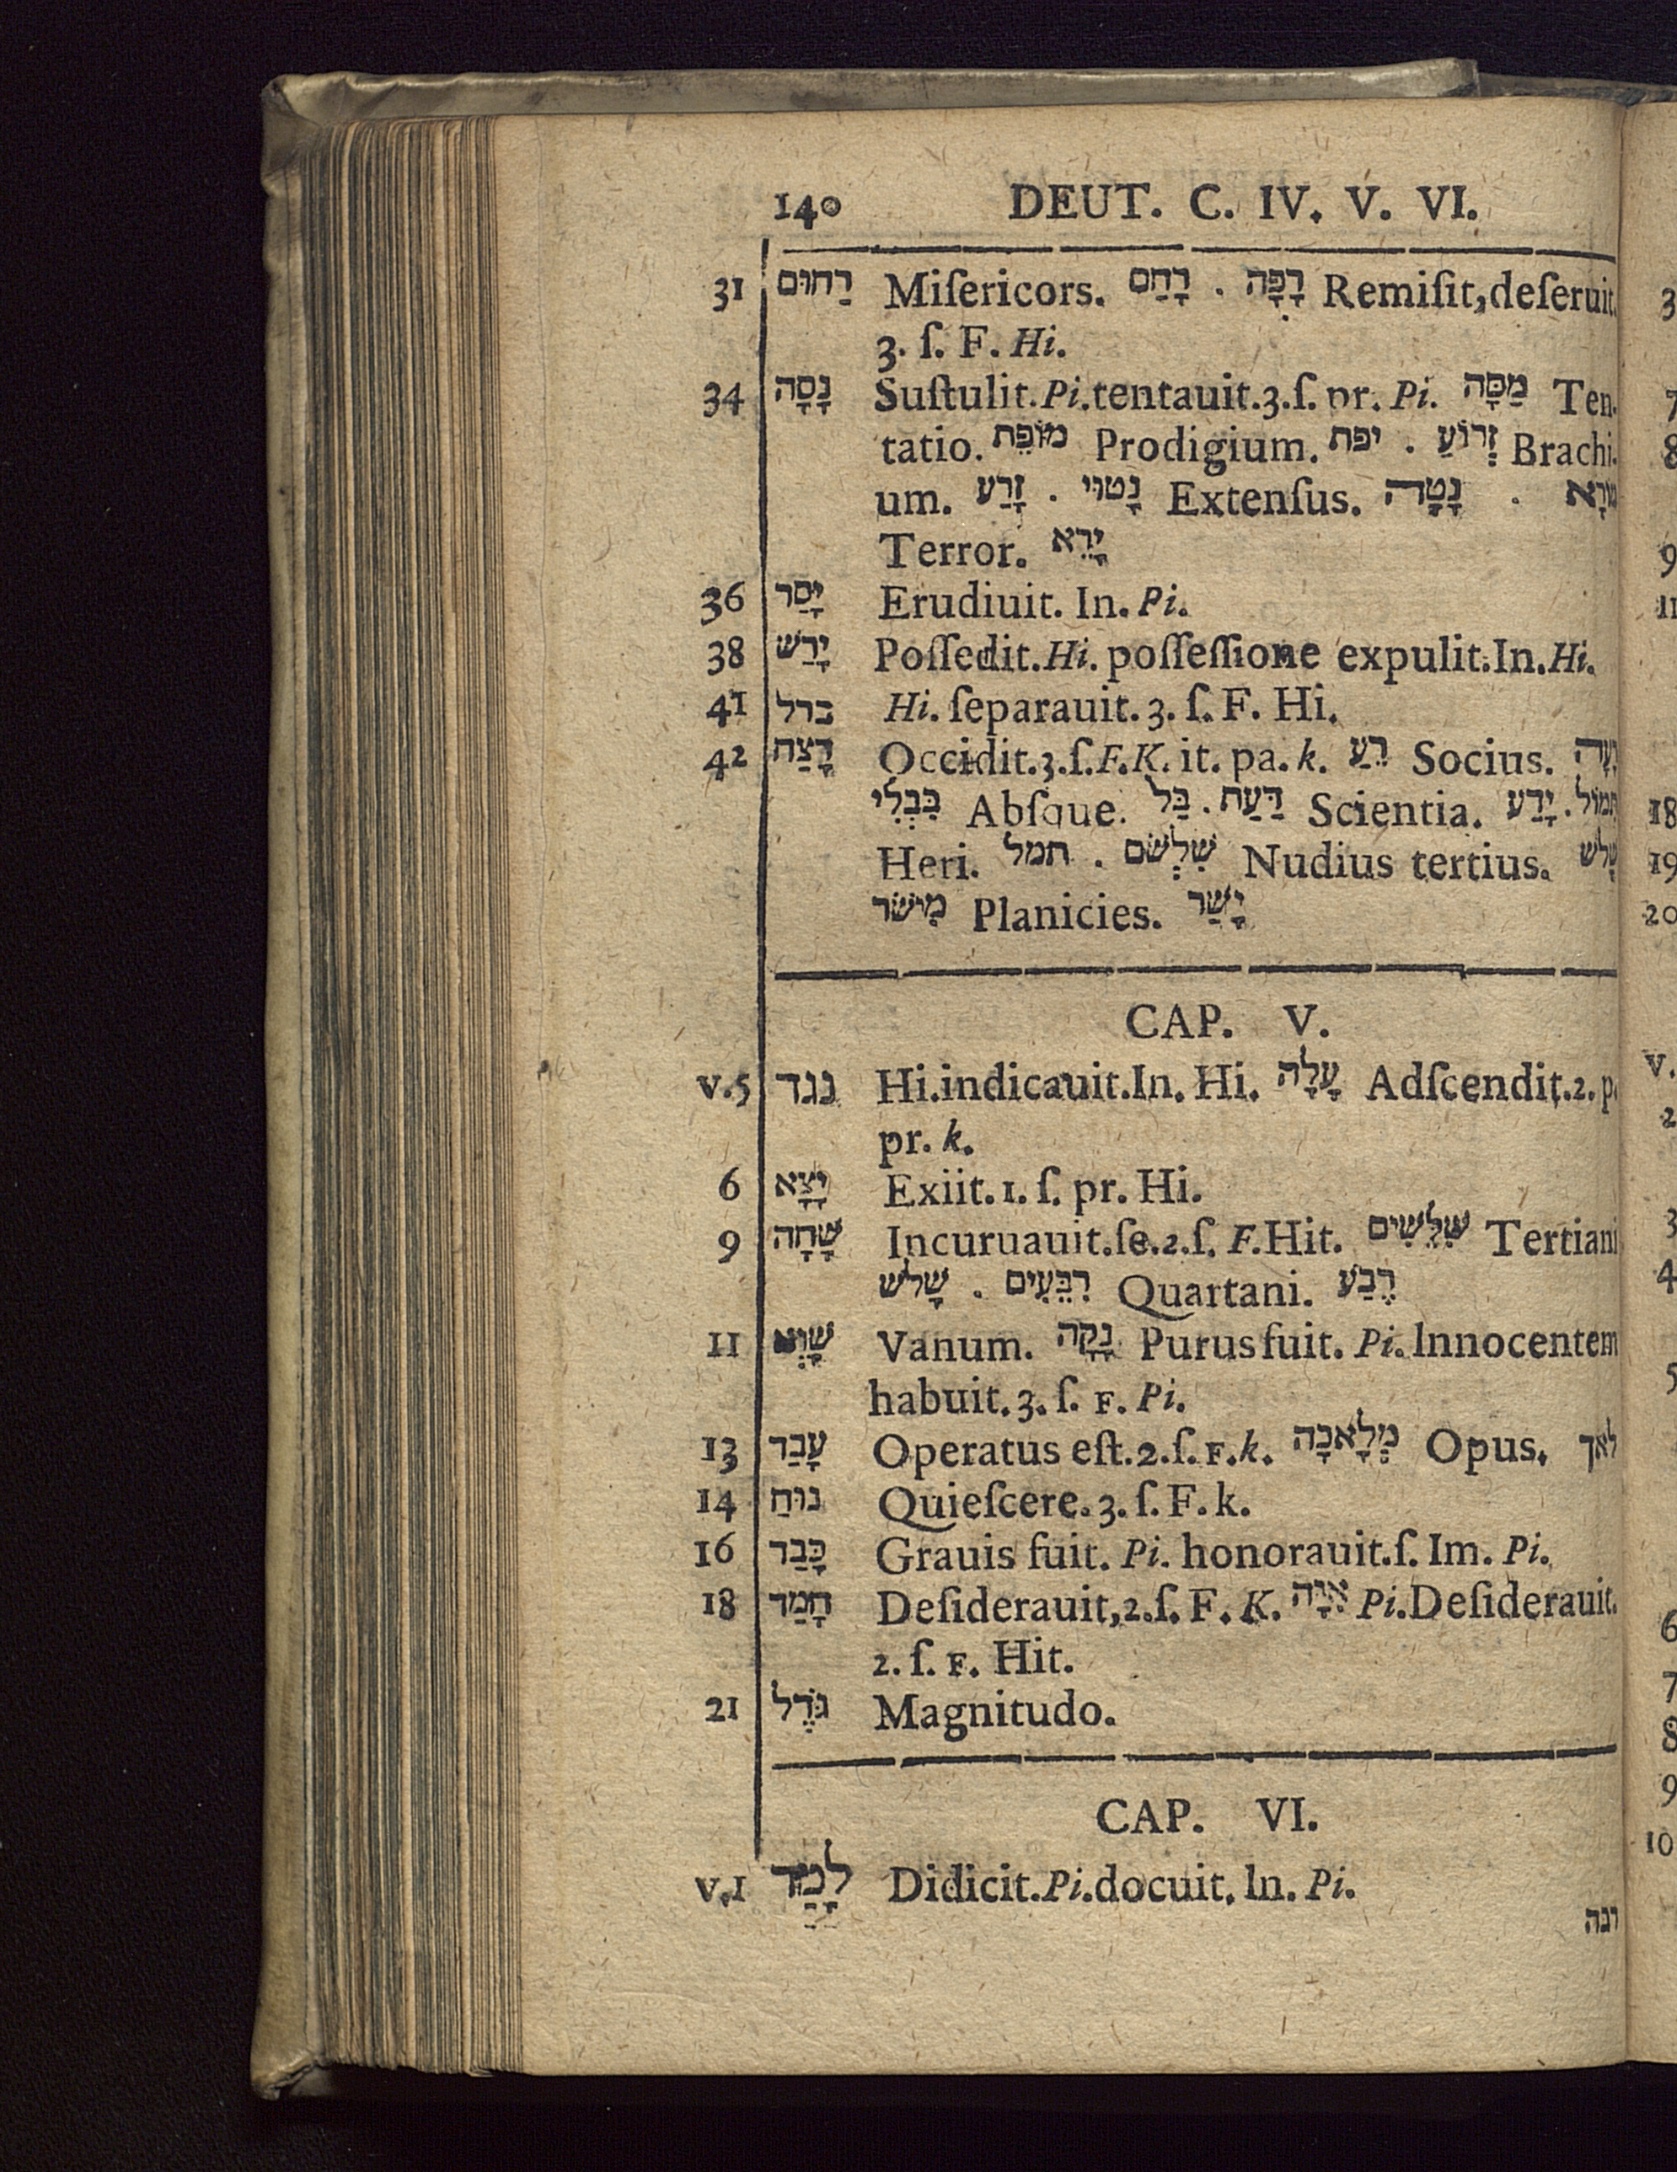 140 DEUT. C. IV. V. VI.
31 רַחוּם Miſericors. רָחַם . רָפָּה Remiſit,deſeruit.
3. ſ. F. Hi.
34 נָסָה Suſtulit.Pi.tentauit.3.ſ.pr. Pi. מַסָּה Ten-
tatio. מוֹפֵת Prodigium. יפת . זְרוֹעַ Brachi-
um. זָרַע . נָטוּי Extenſus. נָטָה .
Terror. יָרֵא
36 יָסַר Erudiuit. In. Pi.
38 יָרַשׁ Poſſedit.Hi. poſſeſſione expulit.In.Hi.
41 בדל Hi. ſeparauit. 3. ſ. F. Hi.
42 רָצַח Occidit.3.ſ.F.K. it. pa. k. רֵעַ Socius.
בִּבְלִי Abſque. בַּל . דַּעַת Scientia. יָדַע . תמול
Heri. תמל . שִׁלְשֹׁם Nudius tertius. שלש
מִישֹׁר Planicies. יָשַׁר
CAP. V.
v.5 נגד Hi.indicauit.In. Hi. עָלָה Adſcendit.2. p.
pr. k.
6 יָצָא Exiit. 1. ſ. pr. Hi.
9 שָׁחָה Incuruauit.ſe.2.ſ. F.Hit. שִׁלֵּשִׁים Tertiani
שָׁלש . רִבֵּעִים Quartani. רֶבַע
11 שָׁוְא Vanum. נָקָה Purus fuit. Pi. Innocentem
habuit. 3. ſ. F. Pi.
13 עָבַד Operatus eſt.2.ſ. F.k. מְלָאכָה Opus. לאך
14 נוּחַ Quieſcere. 3. ſ. F. k.
16 כָּבַד Grauis fuit. Pi. honorauit.ſ. Im. Pi.
18 חָמַד Deſiderauit,2.ſ. F. K. אִוָּה Pi.Deſiderauit.
2. ſ. F. Hit.
21 גֹּדֶל Magnitudo.
CAP. VI.
v.1 לָמַד Didicit.Pi.docuit. In. Pi.